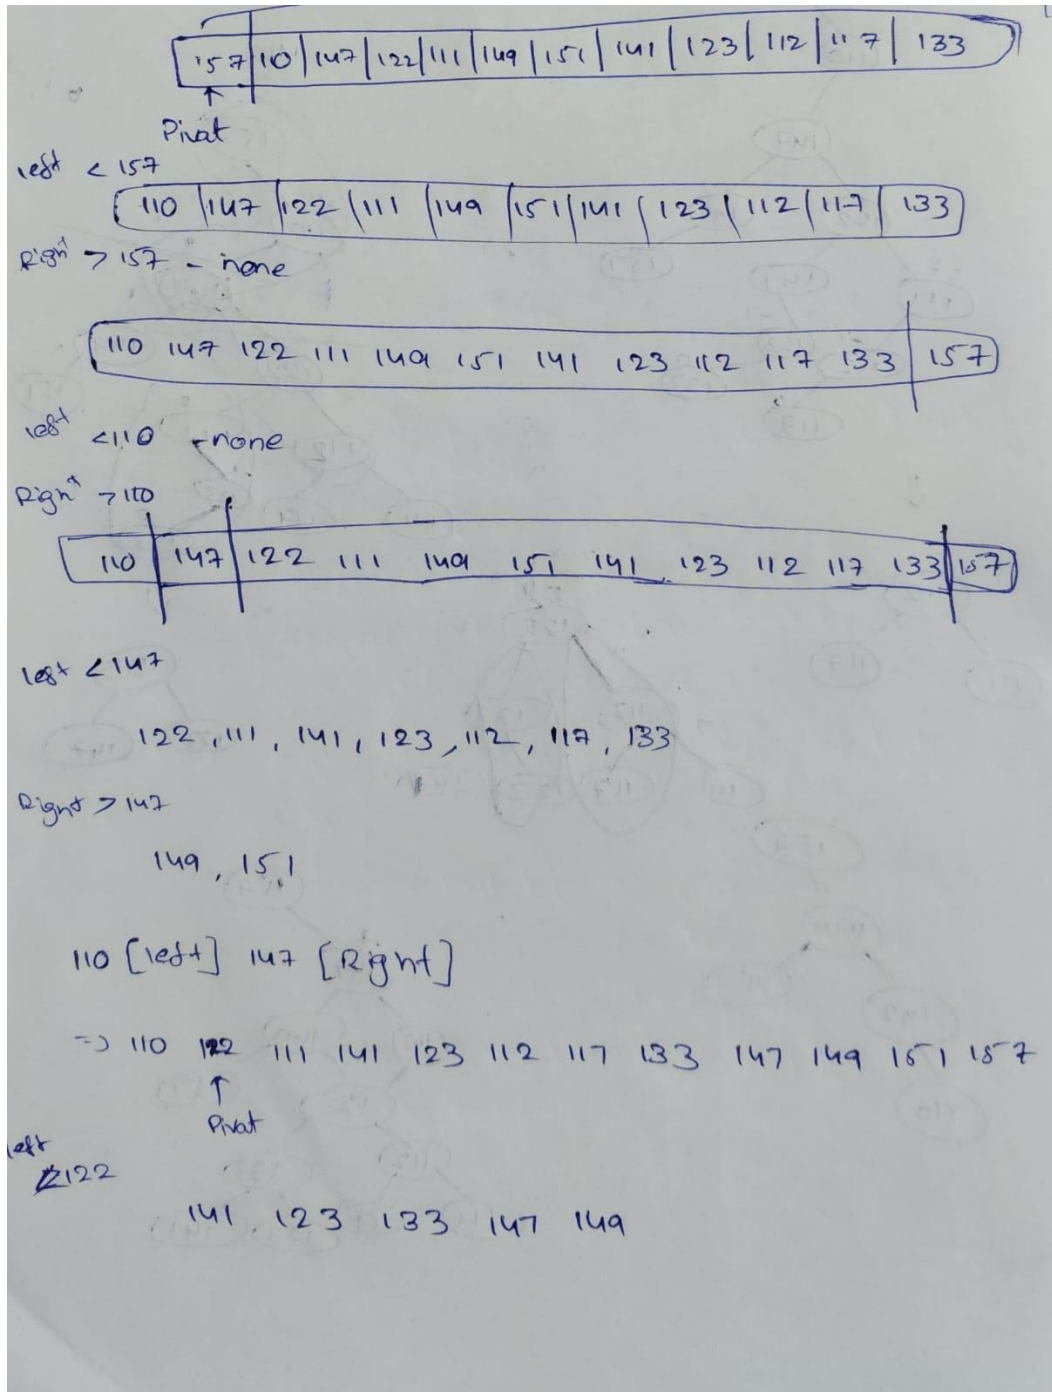 157 | 110 | 147 | 122 | 111 | 149 | 151 | 141 | 123 | 112 | 117 | 133
↑
Pivat
left < 157
110 | 147 | 122 | 111 | 149 | 151 | 141 | 123 | 112 | 117 | 133
Right > 157 - none
110 147 122 111 149 151 141 123 112 117 133 | 157
left <110 -none
Right >110
110 | 147 | 122 111 149 151 141 123 112 117 133 | 157
left <147
122, 111, 141, 123, 112, 117, 133
Right > 147
149, 151
110 [left] 147 [Right]
=> 110 122 111 141 123 112 117 133 147 149 151 157
↑
Pivat
left
<122
141 123 133 147 149